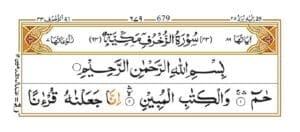 ٦٧٩ 679
اٰیَاتُهَا ٨٩ (٤٣) سُوْرَةُ الزُّخْرُفِ مَكِّيَّةٌ (٦٣) رُكُوْعَاتُهَا ٧
بِسْمِ اللّٰهِ الرَّحْمٰنِ الرَّحِيْمِ
حٰمٓ ۚ ١ وَالْكِتٰبِ الْمُبِيْنِ ۙ ٢ اِنَّا جَعَلْنٰهُ قُرْءٰنًا